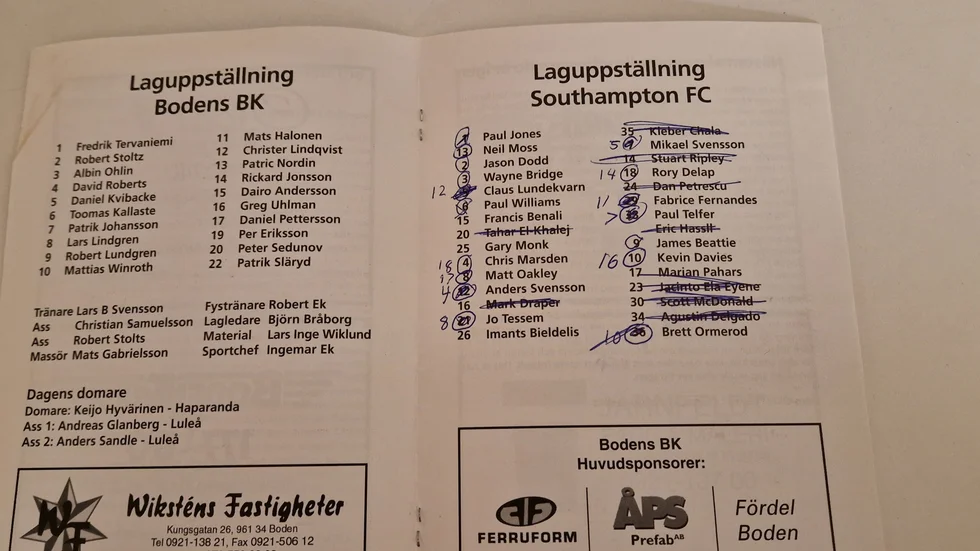 Laguppställning
Bodens BK
1 Fredrik Tervaniemi
2 Robert Stoltz
3 Albin Ohlin
4 David Roberts
5 Daniel Kvibacke
6 Toomas Kallaste
7 Patrik Johansson
8 Lars Lindgren
9 Robert Lundgren
10 Mattias Winroth
11 Mats Halonen
12 Christer Lindqvist
13 Patric Nordin
14 Rickard Jonsson
15 Dairo Andersson
16 Greg Uhlman
17 Daniel Pettersson
19 Per Eriksson
20 Peter Sedunov
22 Patrik Släryd
Tränare Lars B Svensson
Ass Christian Samuelsson
Ass Robert Stolts
Massör Mats Gabrielsson
Fystränare Robert Ek
Lagledare Björn Bråborg
Material Lars Inge Wiklund
Sportchef Ingemar Ek
Dagens domare
Domare: Keijo Hyvärinen - Haparanda
Ass 1: Andreas Glanberg - Luleå
Ass 2: Anders Sandle - Luleå
WF
Wiksténs Fastigheter
Kungsgatan 26, 961 34 Boden
Tel 0921-138 21, Fax 0921-506 12
Laguppställning
Southampton FC
1 Paul Jones
13 Neil Moss
2 Jason Dodd
3 Wayne Bridge
12 Claus Lundekvarn
6 Paul Williams
15 Francis Benali
20 Tahar El-Khalej
25 Gary Monk
18 4 Chris Marsden
8 Matt Oakley
4 12 Anders Svensson
16 Mark Draper
8 21 Jo Tessem
26 Imants Bieldelis
35 Kleber Chala
5 Mikael Svensson
14 Stuart Ripley
14 18 Rory Delap
24 Dan Petrescu
11 Fabrice Fernandes
7 Paul Telfer
Eric Hassli
9 James Beattie
16 10 Kevin Davies
17 Marian Pahars
23 Jacinto Ela Eyene
30 Scott McDonald
34 Agustin Delgado
10 36 Brett Ormerod
Bodens BK
Huvudsponsorer:
FERRUFORM
ÅPS
Prefab AB
Fördel
Boden